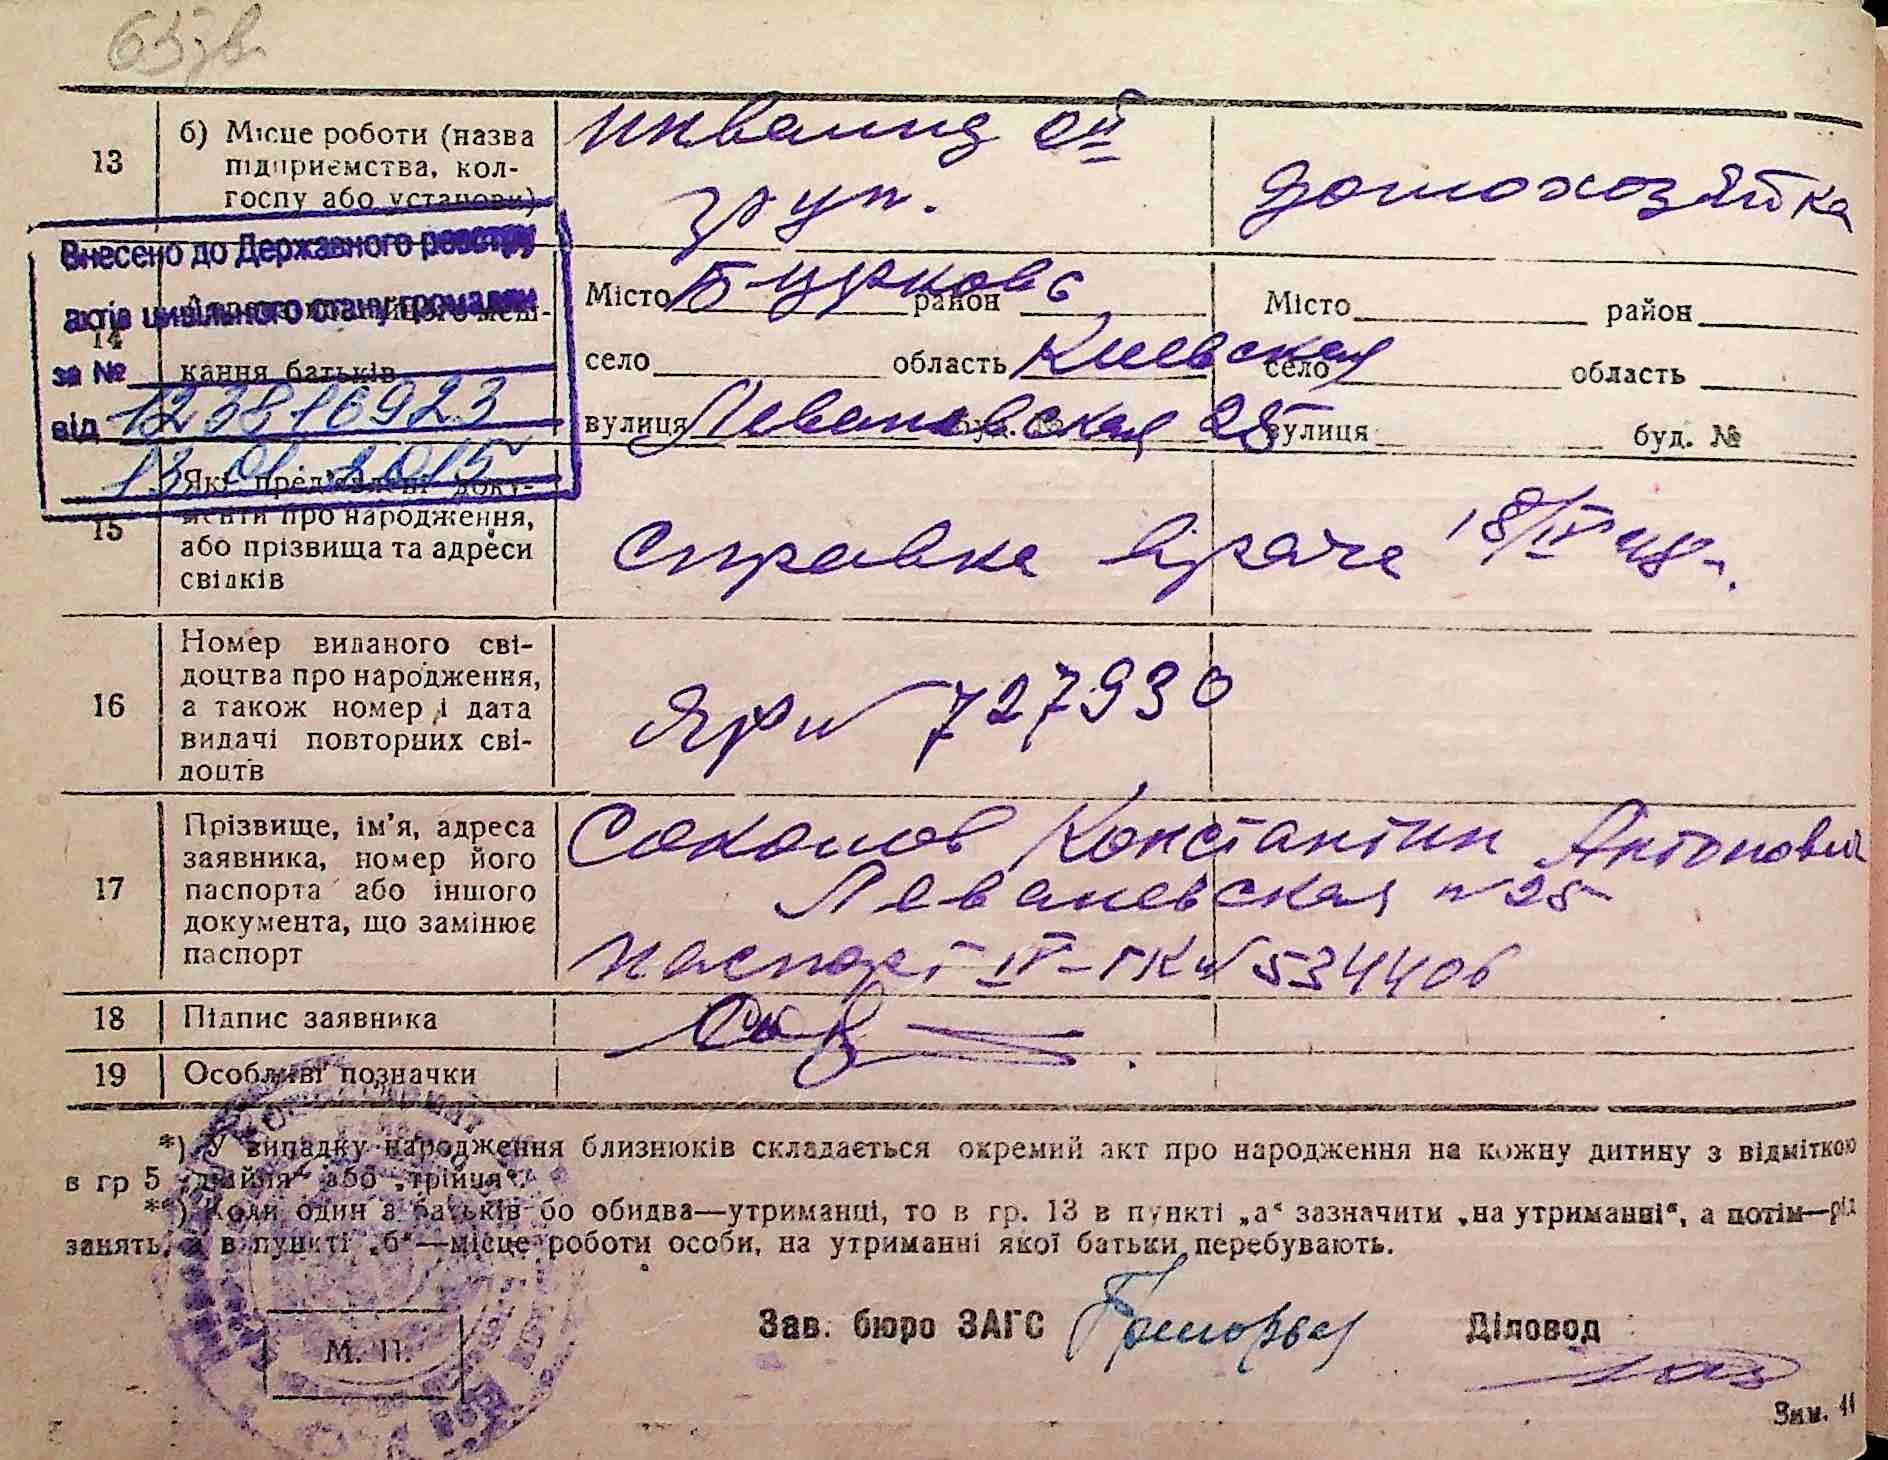 63 зв.
13
б) Місце роботи (назва
підприємства, кол-
госпу або установи)
инвалид 2й
груп.
домохозяйка
Внесено до Державного реєстру
актів цивільного стану громадян
за №
123816923
від
13 01 2015
14
кання батьків
Місто район
село область Киевская
вулиця Леваневская буд. № 25
Місто район
село область
вулиця буд. №
15
Які пред'явлені доку-
менти про народження,
або прізвища та адреси
свідків
справка врача 18/IV 48г.
16
Номер виданого сві-
доцтва про народження,
а також номер і дата
видачі повторних сві-
доцтв
№ 727930
17
Прізвище, ім'я, адреса
заявника, номер його
паспорта або іншого
документа, що замінює
паспорт
Соколов Константин Антонович
Леваневская № 25
паспорт IV-ГК № 534406
18
Підпис заявника
19
Особливі позначки
*) У випадку народження близнюків складається окремий акт про народження на кожну дитину з відміткою
в гр 5 „двійня" або „трійця".
**) Коли один з батьків бо обидва—утриманці, то в гр. 13 в пункті „а" зазначити „на утриманні", а потім—рід
занять, а в пункті „б"—місце роботи особи, на утриманні якої батьки перебувають.
М. П.
Зав. бюро ЗАГС
Діловод
Зим. 11